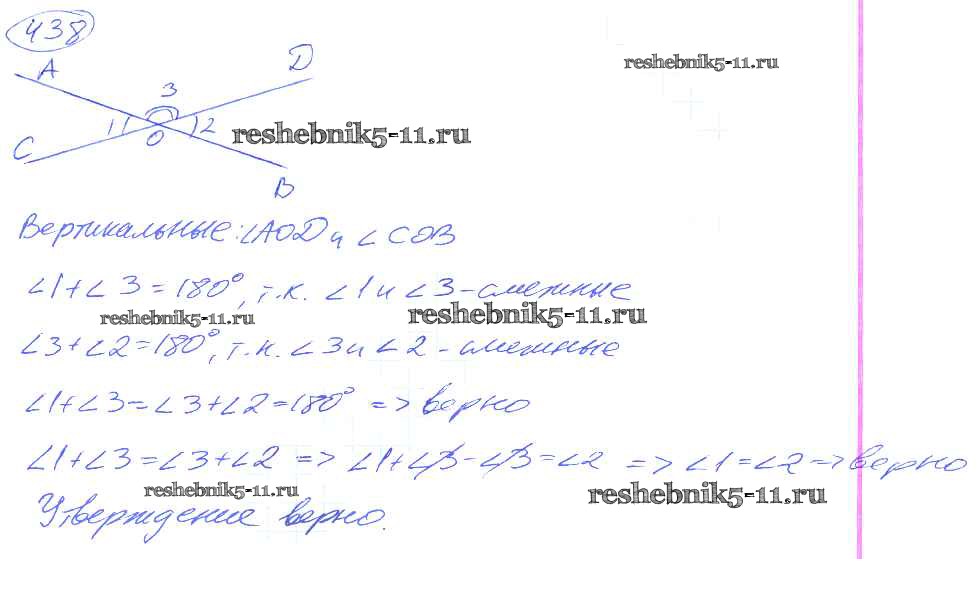 438
A
D
3
1
2
O
C
B
reshebnik5-11.ru
reshebnik5-11.ru
Вертикальные: ∠AOD и ∠COB
∠1+∠3=180°, т.к. ∠1 и ∠3-смежные
reshebnik5-11.ru
reshebnik5-11.ru
∠3+∠2=180°, т.к. ∠3 и ∠2-смежные
∠1+∠3=∠3+∠2=180° => верно
∠1+∠3=∠3+∠2 => ∠1+∠3-∠3=∠2 => ∠1=∠2 => верно
reshebnik5-11.ru
reshebnik5-11.ru
Утверждение верно.